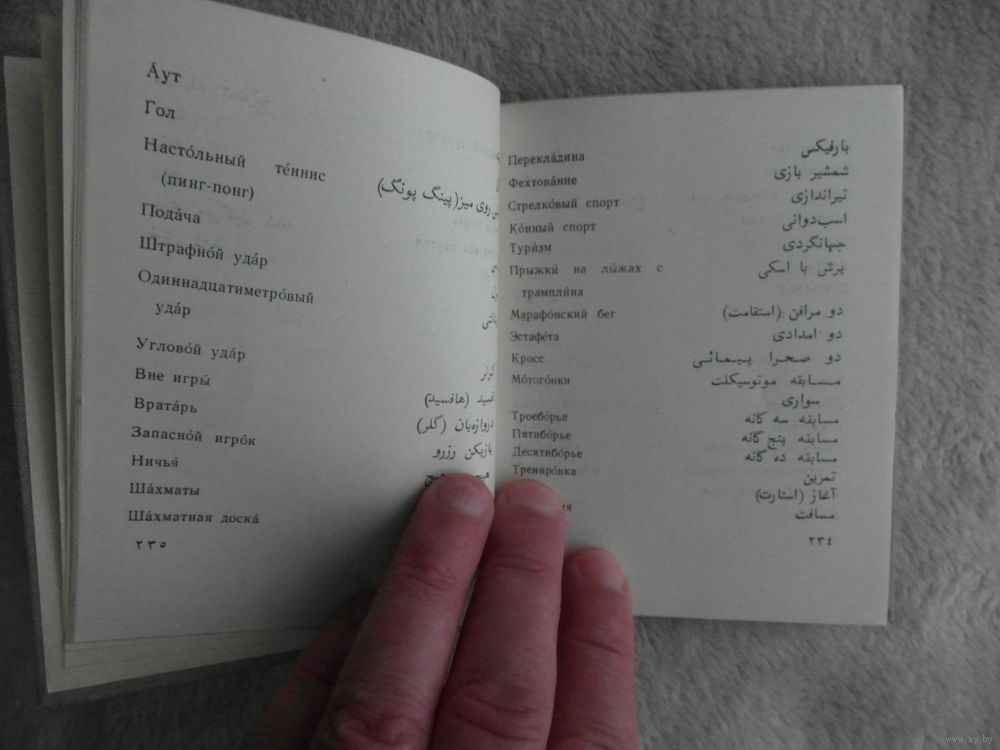 А́ут
Гол
Насто́льный те́ннис
(пинг-понг) روی میز (پینگ پونگ)
Пода́ча
Штрафно́й уда́р
Одиннадцатиметро́вый
уда́р
Углово́й уда́р کرنر
Вне игры́ (هافسید)
Врата́рь دروازه‌بان (گلر)
Запасно́й игро́к بازیکن رزرو
Ничья́
Ша́хматы
Ша́хматная доска́
٢٣٥
Перекла́дина بارفیکس
Фехтова́ние شمشیر بازی
Стрелко́вый спорт تیراندازی
Ко́нный спорт اسب‌دوانی
Тури́зм جهانگردی
Прыжки́ на лы́жах с پرش با اسکی
трампли́на
Марафо́нский бег دو مرافن (استقامت)
Эстафе́та دو امدادی
Кросс دو صحرا پیمائی
Мо́того́нки مسابقه موتوسیکلت
سواری
Троебо́рье مسابقه سه گانه
Пятибо́рье مسابقه پنج گانه
Десятибо́рье مسابقه ده گانه
Трениро́вка تمرین
آغاز (استارت)
مسافت
٢٣٤
www.ay.by